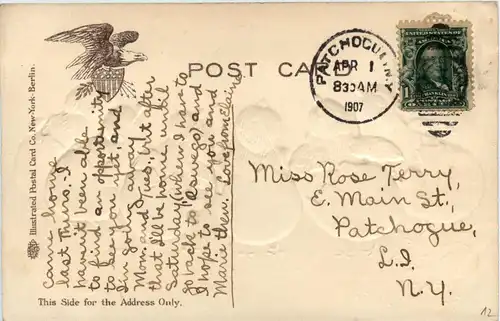 POST CARD
PATCHOGUE, N.Y.
APR 1
830AM
1907
UNITED STATES OF AMERICA
1
FRANKLIN
Illustrated Postal Card Co., New-York-Berlin.
Came home
last Thurs. I
haven't been able
to find an opportunity
to see you yet and
I'm going away
Mon. and Tues., but after
that I'll be home until
Saturday (when I have to
go back to Oswego) and
I hope to see you and
Marie then. Love from Elaine
Miss Rose Terry,
E. Main St.,
Patchogue,
L.I.
N.Y.
This Side for the Address Only.
12